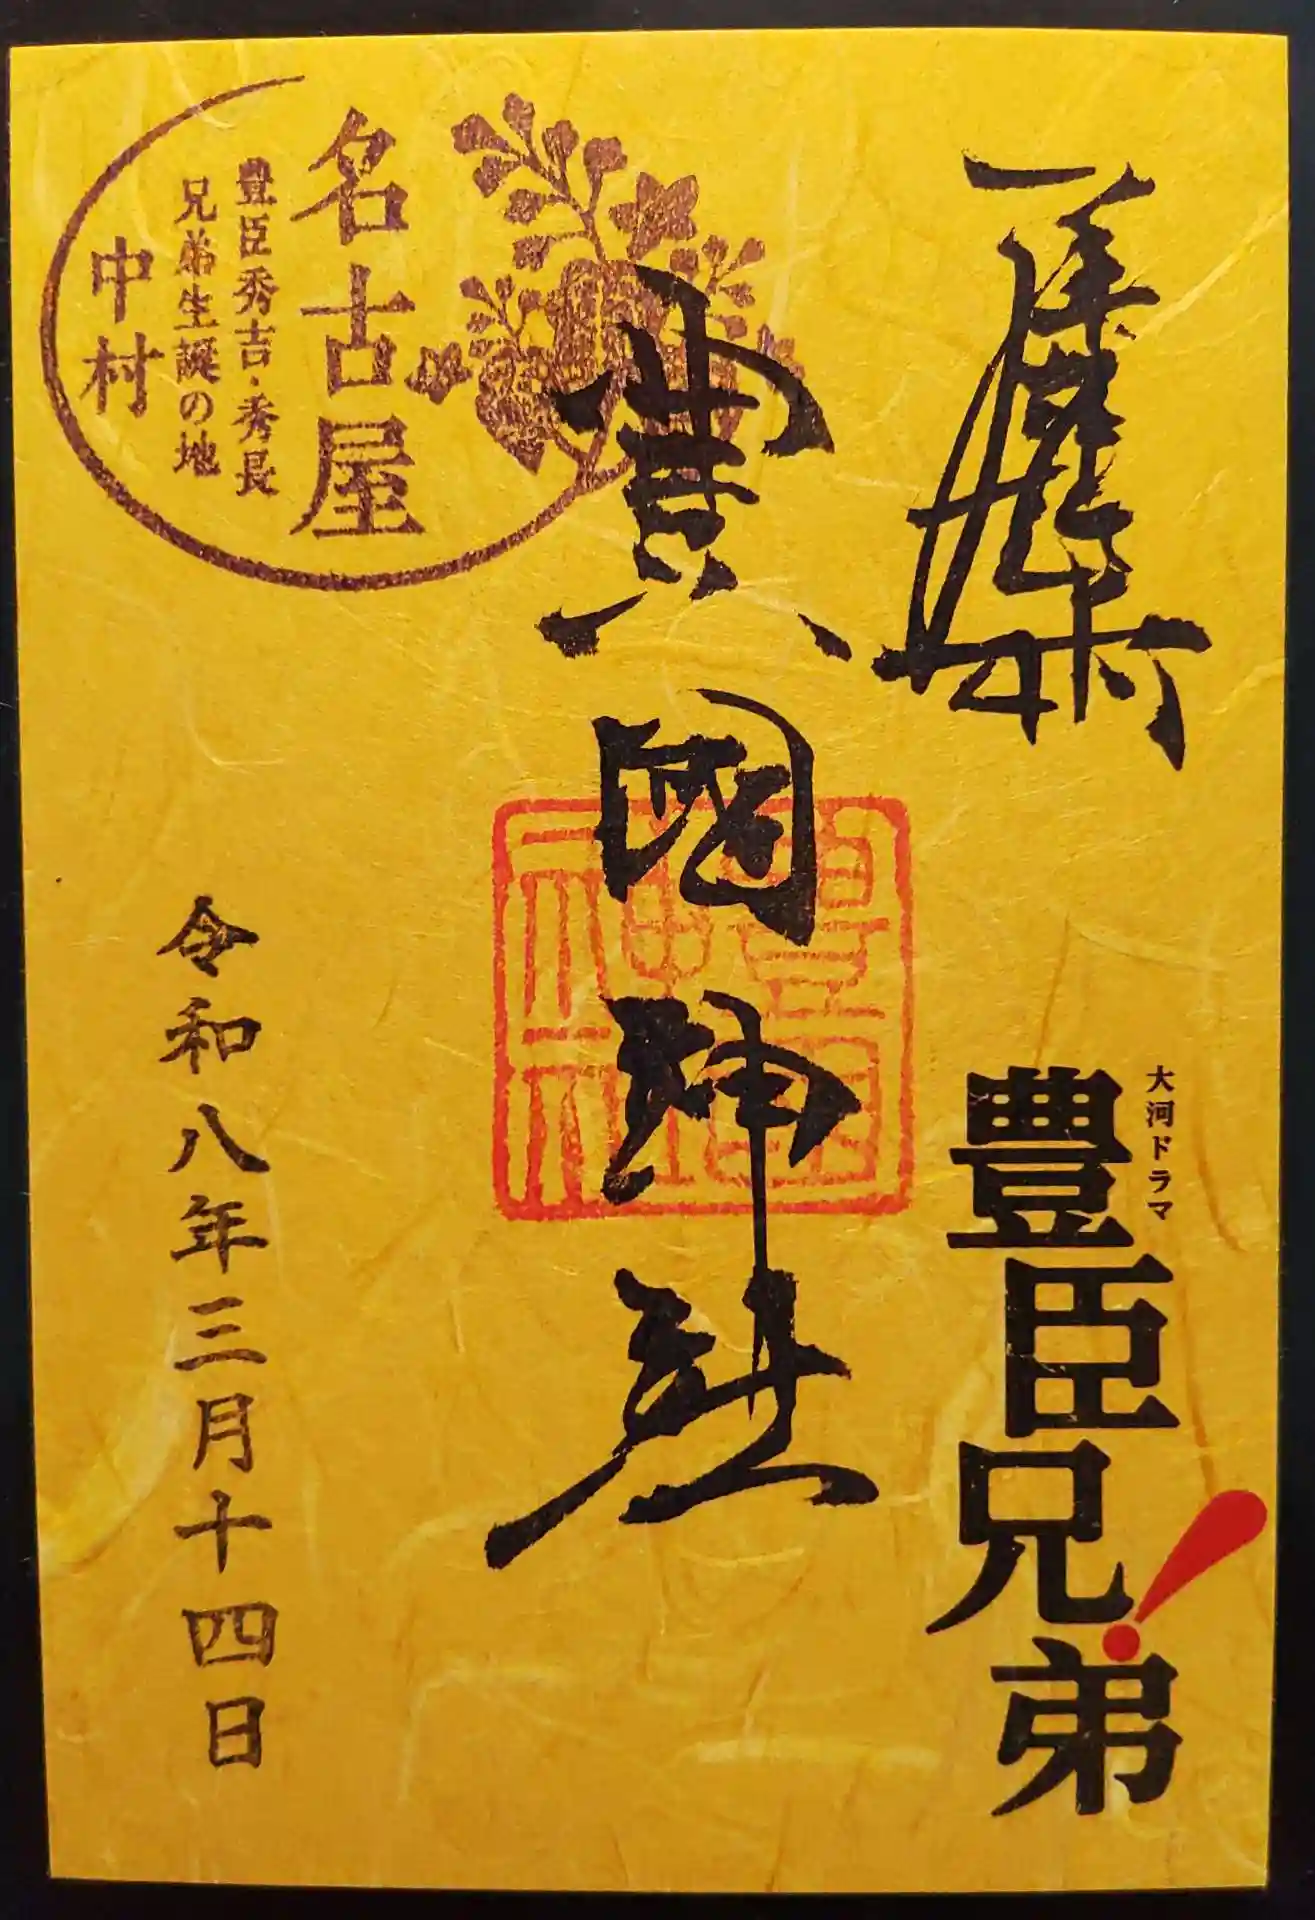 大河ドラマ
豊臣兄弟!
豊國神社
名古屋
豊臣秀吉・秀長
兄弟生誕の地
中村
令和八年三月十四日